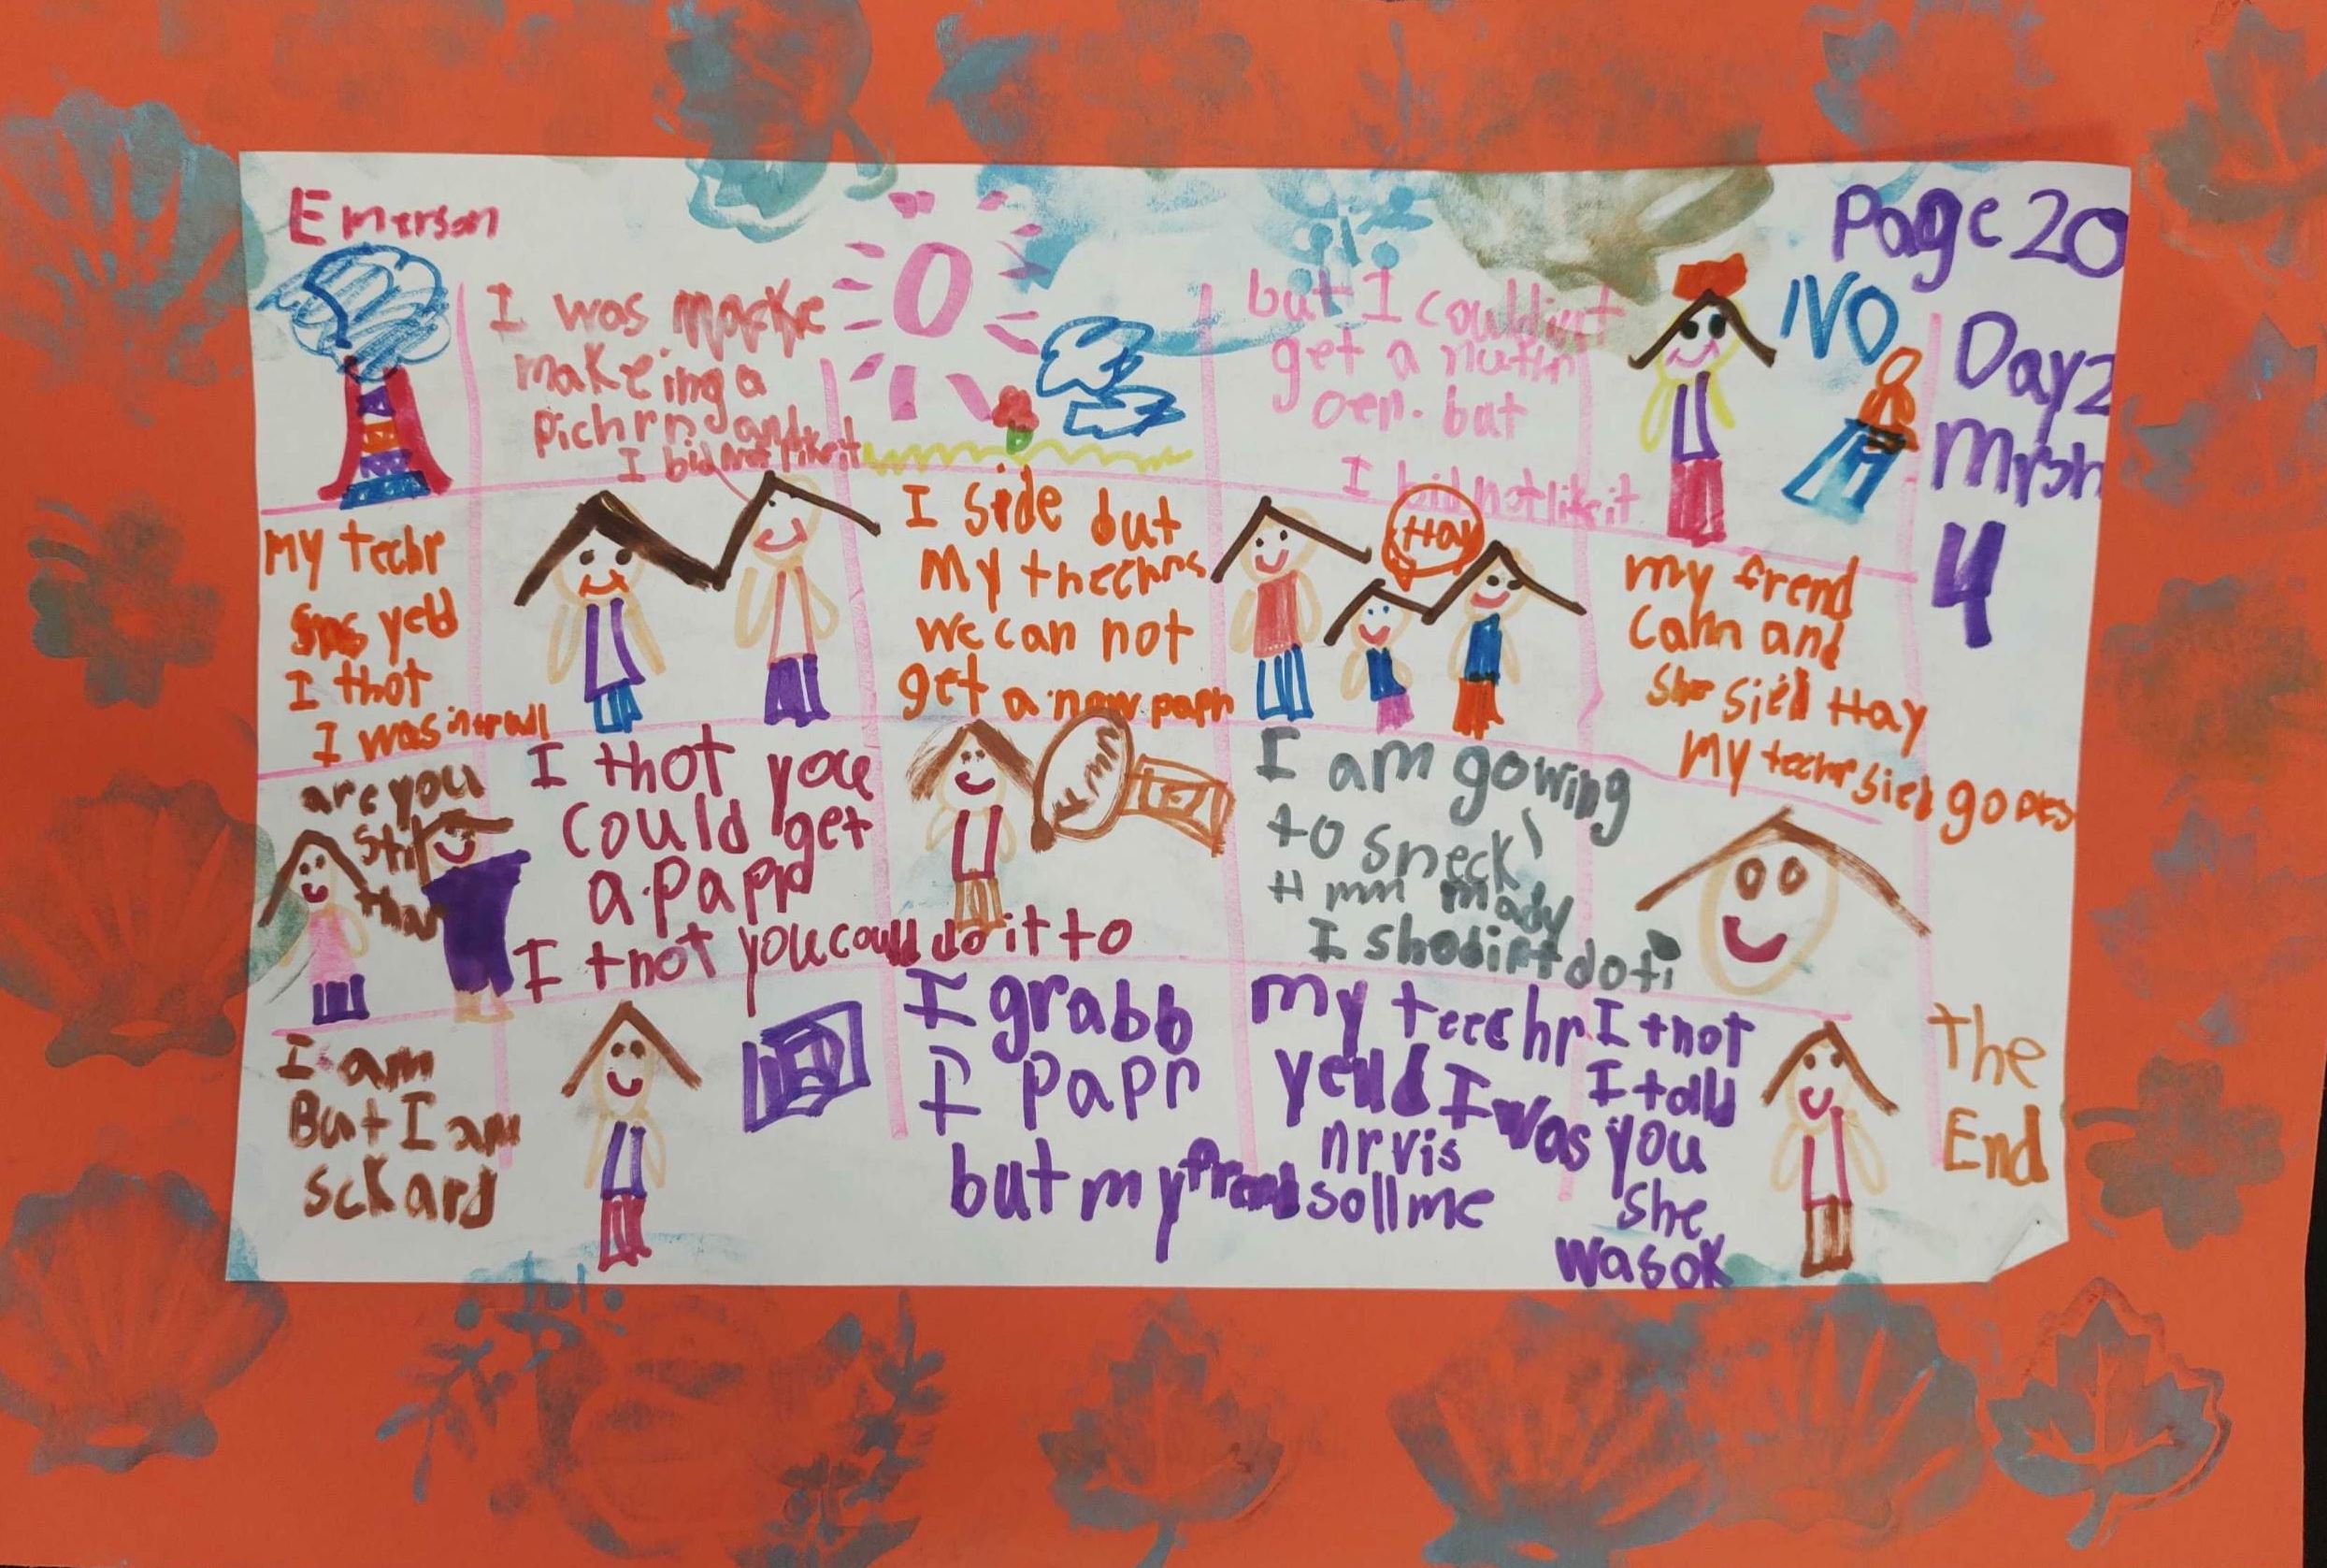 Emerson
Page 20
Day 2
Mrsh
4
I was macke
makeing a
pichrng and
I bid not like it
but I couldint
get a nuthr
oen. but
I bid not like it
NO
My techr
yeld
I thot
I was in trull
I side but
My thechrs
we can not
get a now papr
Hay
my frend
Cahn and
she sied Hay
My techr sied go oes
are you
stil
thar
I thot you
Could get
a papr
I thot you could do it to
I am gowing
to sneck
H mm mady
I shodint do ti
I am
But I am
sckard
I grabb
I papr
but my frend soll me
my teechr
yelld I was
nrvis
I thot
I talld
you
She
was ok
the
End